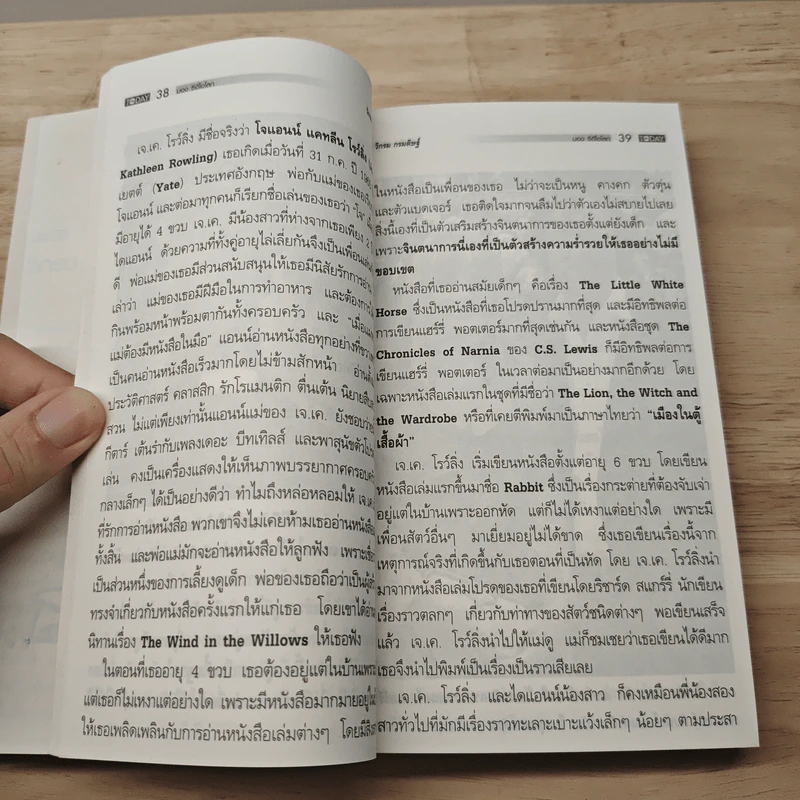 TODAY 38 มอง ซีอีโอโลก
เจ.เค. โรว์ลิ่ง มีชื่อจริงว่า โจแอนน์ แคทลีน โรว์ลิ่ง
Kathleen Rowling) เธอเกิดเมื่อวันที่ 31 ก.ค. ปี
เยตต์ (Yate) ประเทศอังกฤษ พ่อกับแม่ของเธอ
โจแอนน์ และต่อมาทุกคนก็เรียกชื่อเล่นของเธอว่า "โจ"
มีอายุได้ 4 ขวบ เจ.เค. มีน้องสาวที่ห่างจากเธอเพียง 2
ไดแอนน์ ด้วยความที่ทั้งคู่อายุไล่เลี่ยกันจึงเป็นเพื่อน
ดี พ่อแม่ของเธอมีส่วนสนับสนุนให้เธอมีนิสัยรักการอ่าน
เล่าว่า แม่ของเธอมีฝีมือในการทำอาหาร และต้องการ
กินพร้อมหน้าพร้อมตากันทั้งครอบครัว และ "เมื่อ
แม่ต้องมีหนังสือในมือ" แอนน์อ่านหนังสือทุกอย่างที่
เป็นคนอ่านหนังสือเร็วมากโดยไม่ข้ามสักหน้า อ่าน
ประวัติศาสตร์ คลาสสิก รักโรแมนติก ตื่นเต้น นิยาย
สวน ไม่แต่เพียงเท่านั้นแอนน์แม่ของ เจ.เค. ยังชอบ
กีตาร์ เต้นรำกับเพลงเดอะ บีทเทิลส์ และพาสุนัขตัว
เล่น คงเป็นเครื่องแสดงให้เห็นภาพบรรยากาศครอบครัว
กลางเล็กๆ ได้เป็นอย่างดีว่า ทำไมถึงหล่อหลอมให้ เจ.เค.
ที่รักการอ่านหนังสือ พวกเขาจึงไม่เคยห้ามเธออ่านหนังสือ
ทั้งสิ้น และพ่อแม่มักจะอ่านหนังสือให้ลูกฟัง เพราะ
เป็นส่วนหนึ่งของการเลี้ยงดูเด็ก พ่อของเธอถือว่าเป็น
ทรงจำเกี่ยวกับหนังสือครั้งแรกให้แก่เธอ โดยเขาได้อ่าน
นิทานเรื่อง The Wind in the Willows ให้เธอฟัง
ในตอนที่เธออายุ 4 ขวบ เธอต้องอยู่แต่ในบ้านเพราะ
แต่เธอก็ไม่เหงาแต่อย่างใด เพราะมีหนังสือมากมายอยู่
ให้เธอเพลิดเพลินกับการอ่านหนังสือเล่มต่างๆ โดยมี
วิกรม กรมดิษฐ์ มอง ซีอีโอโลก 39 TODAY
ในหนังสือเป็นเพื่อนของเธอ ไม่ว่าจะเป็นหนู คางคก ตัวตุ่น
และตัวแบดเจอร์ เธอติดใจมากจนลืมไปว่าตัวเองไม่สบายไปเลย
สิ่งนี้เองที่เป็นตัวเสริมสร้างจินตนาการของเธอตั้งแต่ยังเด็ก และ
เพราะจินตนาการนี่เองที่เป็นตัวสร้างความร่ำรวยให้เธออย่างไม่มี
ขอบเขต
หนังสือที่เธออ่านสมัยเด็กๆ คือเรื่อง The Little White
Horse ซึ่งเป็นหนังสือที่เธอโปรดปรานมากที่สุด และมีอิทธิพลต่อ
การเขียนแฮร์รี่ พอตเตอร์มากที่สุดเช่นกัน และหนังสือชุด The
Chronicles of Narnia ของ C.S. Lewis ก็มีอิทธิพลต่อการ
เขียนแฮร์รี่ พอตเตอร์ ในเวลาต่อมาเป็นอย่างมากอีกด้วย โดย
เฉพาะหนังสือเล่มแรกในชุดที่มีชื่อว่า The Lion, the Witch and
the Wardrobe หรือที่เคยตีพิมพ์มาเป็นภาษาไทยว่า "เมืองในตู้
เสื้อผ้า"
เจ.เค. โรว์ลิ่ง เริ่มเขียนหนังสือตั้งแต่อายุ 6 ขวบ โดยเขียน
หนังสือเล่มแรกขึ้นมาชื่อ Rabbit ซึ่งเป็นเรื่องกระต่ายที่ต้องจับเจ่า
อยู่แต่ในบ้านเพราะออกหัด แต่ก็ไม่ได้เหงาแต่อย่างใด เพราะมี
เพื่อนสัตว์อื่นๆ มาเยี่ยมอยู่ไม่ได้ขาด ซึ่งเธอเขียนเรื่องนี้จาก
เหตุการณ์จริงที่เกิดขึ้นกับเธอตอนที่เป็นหัด โดย เจ.เค. โรว์ลิ่งนำ
มาจากหนังสือเล่มโปรดของเธอที่เขียนโดยริชาร์ด สแกร์รี่ นักเขียน
เรื่องราวตลกๆ เกี่ยวกับท่าทางของสัตว์ชนิดต่างๆ พอเขียนเสร็จ
แล้ว เจ.เค. โรว์ลิ่งนำไปให้แม่ดู แม่ก็ชมเชยว่าเธอเขียนได้ดีมาก
เธอจึงนำไปพิมพ์เป็นเรื่องเป็นราวเสียเลย
เจ.เค. โรว์ลิ่ง และไดแอนน์น้องสาว ก็คงเหมือนพี่น้องสอง
สาวทั่วไปที่มักมีเรื่องราวทะเลาะเบาะแว้งเล็กๆ น้อยๆ ตามประสา